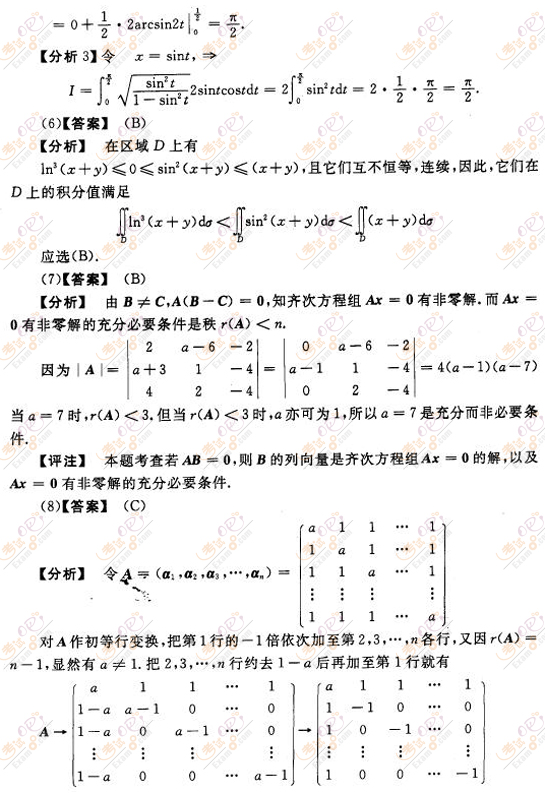 = 0 + 1/2 · 2arcsin2t |₀^{1/2} = π/2.
【分析 3】令 x = sint, ⇒
I = ∫₀^{π/2} √(sin²t/(1−sin²t)) 2sintcostdt = 2∫₀^{π/2} sin²tdt = 2 · 1/2 · π/2 = π/2.
(6)【答案】 (B)
【分析】 在区域 D 上有
ln³(x+y)⩽0⩽sin²(x+y)⩽(x+y),且它们互不恒等,连续,因此,它们在
D 上的积分值满足
∬_D ln³(x+y)dσ < ∬_D sin²(x+y)dσ < ∬_D (x+y)dσ
应选(B).
(7)【答案】 (B)
【分析】 由 B ≠ C,A(B−C) = 0,知齐次方程组 Ax = 0 有非零解.而 Ax =
0 有非零解的充分必要条件是秩 r(A) < n.
因为 | A | = | 2 a−6 −2 | = | 0 a−6 −2 | = 4(a−1)(a−7)
| a+3 1 −4 | | a−1 1 −4 |
| 4 2 −4 | | 0 2 −4 |
当 a = 7 时,r(A) < 3.但当 r(A) < 3 时,a 亦可为 1,所以 a = 7 是充分而非必要条
件.
【评注】 本题考查若 AB = 0,则 B 的列向量是齐次方程组 Ax = 0 的解,以及
Ax = 0 有非零解的充分必要条件.
(8)【答案】 (C)
【分析】 令 A = (α₁,α₂,α₃,⋯,αₙ) =
a 1 1 ⋯ 1
1 a 1 ⋯ 1
1 1 a ⋯ 1
⋮ ⋮ ⋮ ⋮
1 1 1 ⋯ a
对 A 作初等行变换,把第 1 行的 −1 倍依次加至第 2,3,⋯,n 各行,又因 r(A) =
n−1,显然有 a ≠ 1.把 2,3,⋯,n 行约去 1−a 后再加至第 1 行就有
a 1 1 ⋯ 1 a 1 1 ⋯ 1
1−a a−1 0 ⋯ 0 1 −1 0 ⋯ 0
A → 1−a 0 a−1 ⋯ 0 → 1 0 −1 ⋯ 0
⋮ ⋮ ⋮ ⋮ ⋮ ⋮ ⋮ ⋮
1−a 0 0 ⋯ a−1 1 0 0 ⋯ −1